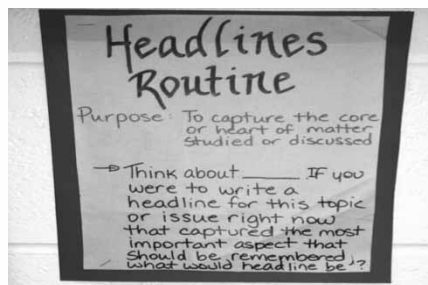 Headlines
Routine
Purpose: To capture the core
or heart of matter
studied or discussed
→ Think about _____ If you
were to write a
headline for this topic
or issue right now
that captured the most
important aspect that
should be remembered,
what would headline be?